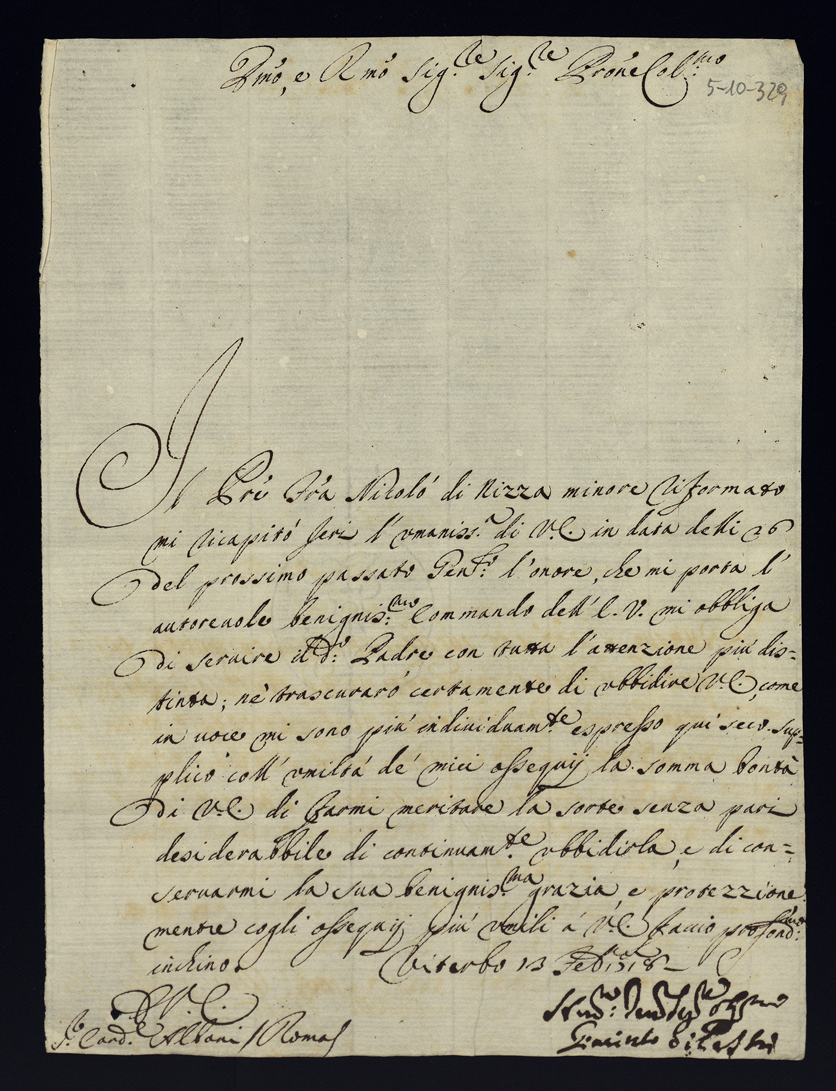 Emo, e Rmo Sig.re Sig.re Prone Col.mo
5-10-329
Il Prê Frà Nicolò di Nizza minore Riformato
mi ricapitò Jeri l'umaniss.a di V.E. in data delli 26
del prossimo passato Gen.ro l'onore, che mi porta l'
autorevole benignis.mo Commando dell'E.V. mi obbliga
di servire il d.o Padre con tutta l'attenzione più dis=
tinta; nè trascurarò certamente di ubbidire V.E., come
in voce mi sono più individuam.te espresso qui seco. Sup=
plico coll'umiltà de' miei ossequij la somma bontà
di V.E. di farmi meritare la sorte senza pari
desiderabbile di continuam.te ubbidirla, e di con=
servarmi la sua benignis.ma grazia e protezzione
mentre cogli ossequij più umili à V.E. faccio profond.mo
inchino. Viterbo 13 Feb.
D.V.E.
S.r Card.le Albani / Roma /
Giacinto